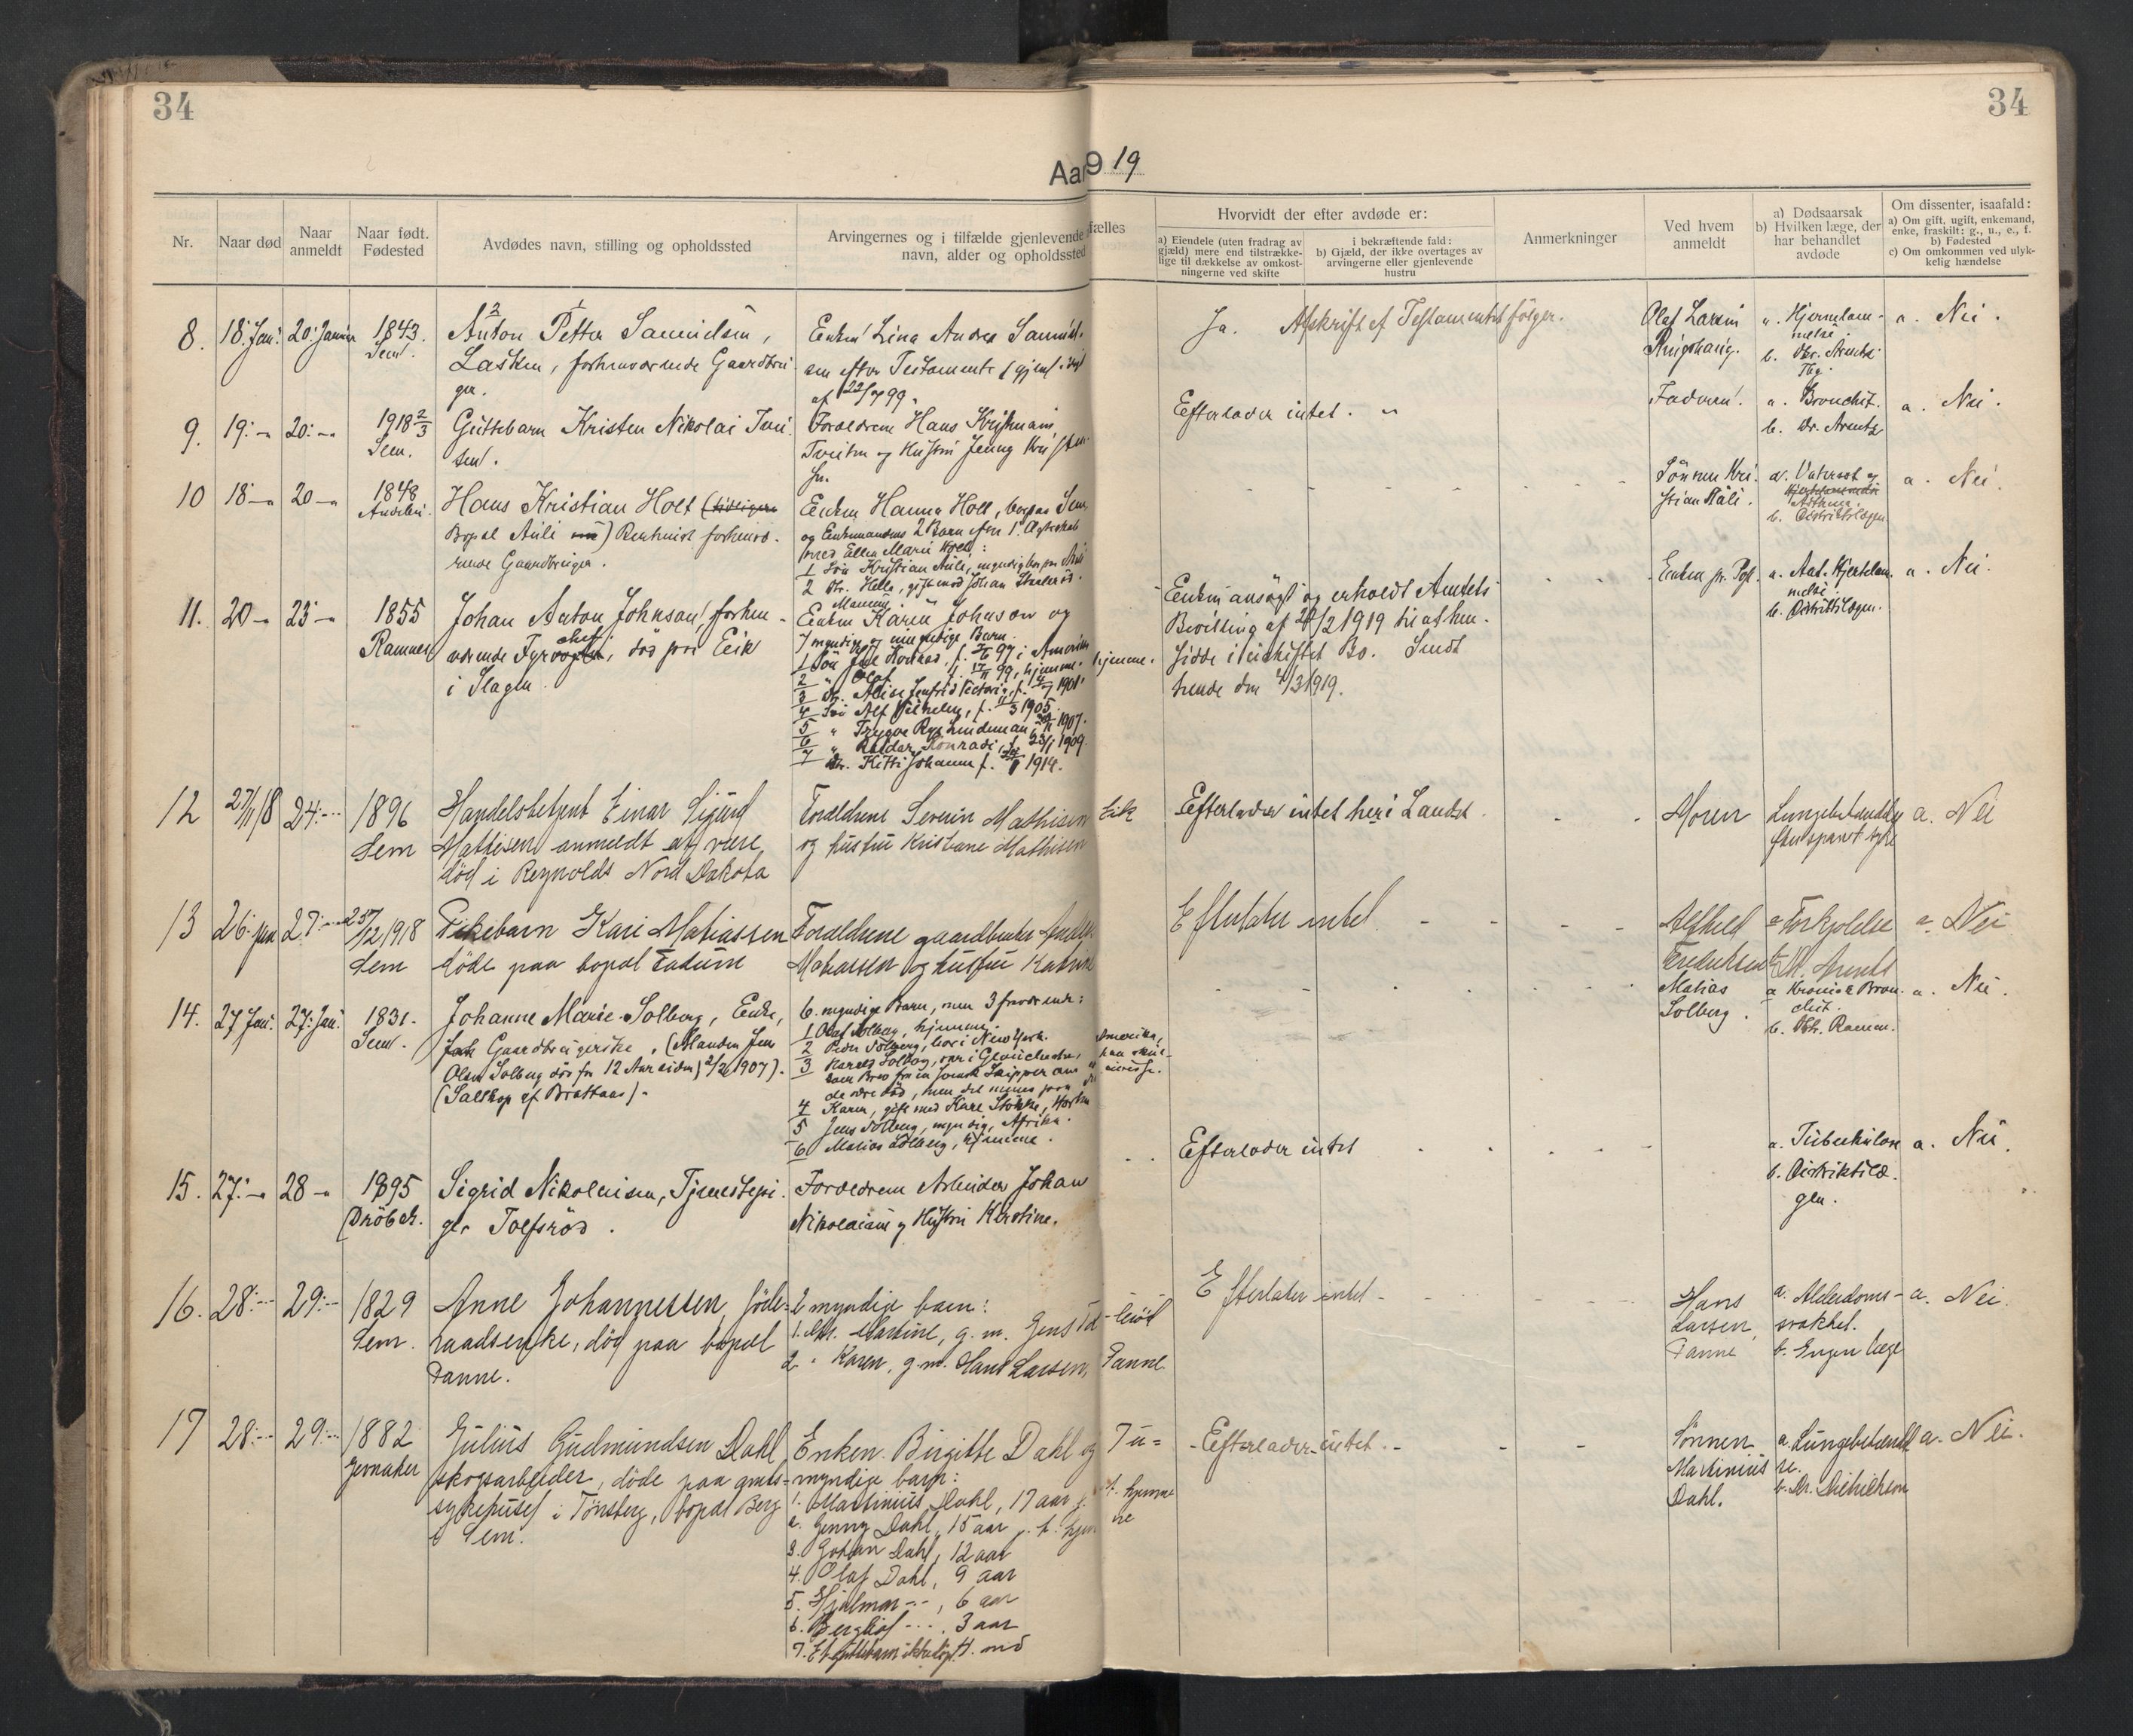 34
34
Aar 1919
Nr.
Naar død
Naar anmeldt
Naar født. Fødested
Avdødes navn, stilling og opholdssted
Arvingernes og i tilfælde gjenlevende
navn, alder og opholdssted
fælles
Hvorvidt der efter avdøde er:
a) Eiendele (uten fradrag av
gjæld) mere end tilstrække-
lige til dækkelse av omkost-
ningerne ved skifte
i bekræftende fald:
b) Gjæld, der ikke overtages av
arvingerne eller gjenlevende
hustru
Anmerkninger
Ved hvem
anmeldt
a) Dødsaarsak
b) Hvilken læge, der
har behandlet
avdøde
Om dissenter, isaafald:
a) Om gift, ugift, enkemand,
enke, fraskilt: g., u., e., f.
b) Fødested
c) Om omkommen ved ulyk-
kelig hændelse
8. 18. Jan. 20. Januar 1843. Sem.
Anton Petter Samuelsen,
forhenværende Gaardbru-
ger.
Enken Lina Andrea Samuel-
sen efter Testamente
af 22/7 99.
Ja. Afskrift af Testamentet følger.
Olaf Larsen
Ringshaug.
a. Hjernelam-
melse
b. Dr. Arentz
Tbg.
a. Nei.
9. 19.- 20.- 1918 2/3 Sem.
Guttebarn Kristen Nikolai
Forældrene Hans Kristian
og Hustru Jenny
Efterlader intet.
Faderen.
a. Bronchit.
b. Dr. Arentz
a. Nei.
10 18- 20- 1848
Hans Kristian Holt (tidligere
Bopæl Auli) Rentenist forhenvæ-
rende Gaardbruger.
Enken Hanna Holt, bopæl Sem
og Enkemandens 2 Barn efter 1. Ægteskab
med Ellen Marie
1 Søn Kristian Auli, myndig
2 Dtr. Helle, gift med Johan
Sønnen Kri-
stian Auli.
a. Vatersot og
Asthma
b. Distriktslægen.
a. Nei.
11. 20- 23- 1855
Ramnes
Johan Anton Johnson, forhen-
værende Fyrvogter, død paa Eik
i Slagen.
Enken Karen Johnson og
7 myndige og umyndige Barn.
2 " Olaf f. 17/11 99, hjemme.
4 Søn Alf Vilhelm, f. 11/3 1905.
7 Dtr. Kitti Johanne f. 1914.
hjemme.
Enken ansøgt og erholdt Amtets
Bevilling af 28/2 1919 til at hen-
sidde i uskiftet Bo. Sendt
hende den 4/3 1919.
Enken pr. Post.
a. Aat. Hjertelam-
melse.
b. Distriktslægen.
a. Nei.
12 27/11 18 24.- 1896
Sem
Handelsbetjent Einar Sigurd
Mathisen anmeldt at være
død i Reynolds Nord Dakota
Forældrene Severin Mathisen
og hustru Kristiane Mathisen
Eik
Efterlader intet her i Landet.
Moren
Lungebetændelse
efter spansk syke
a. Nei
13 26. jan 27.- 25/12 1918
Sem
Pikebarn Kari Matiassen
døde paa bopæl Tadum
Forældrene gaardbruker
Mathiassen og hustru Katrine
Efterlater intet.
Alfhild
Fredriksen
a. Forkjølelse
b. Dr. Arentz
a. Nei
14. 27 Jan. 27. Jan. 1831.
Sem.
Johanne Marie Solberg, Enke,
Gaardbrugerske. (Manden Jens
Olsen Solberg død for 12 Aar siden) 2/2 1907).
6 myndige Barn, men 3 fraværende:
1 Olaf Solberg, hjemme.
2 Peder Solberg, bor i New York.
3 Karels Solberg, var i
4 Karen, gift med Karl Stokke, Horten
5 Jens Solberg, myndig, Afrika.
6 Matias Solberg, hjemme.
Amerika,
Matias
Solberg.
a Kronisk Bron-
chit.
b. Dtr. Ramm.
a. Nei.
15. 27.- 28- 1895
Drøbak.
Sigrid Nikolaisen, Tjenestepi-
ge Tolfsrød.
Forældrene Arbeider Johan
Nikolaisen og Hustru Kirstine.
Efterlader intet
a. Tuberkulose
b. Distriktslæ-
gen.
a. Nei.
16. 28.- 29.- 1829
Sem.
Anne Johannessen, føde-
raadsenke, død paa bopæl
Fanne.
2 myndige barn:
1. Dtr. Martine, g. m. Jens
2. " Karen, g. m. Hans Larsen, Fanne
Efterlater intet
Hans
Larsen,
Fanne
a. Alderdoms-
svakhet.
b. Ingen læge
a. Nei.
17 28.- 29.- 1882
Jernaker
Julius Gudmundsen Dahl
skogsarbeider, døde paa amts-
sykehuset i Tønsberg, bopæl Berg
i Sem.
Enken Birgitte Dahl og 7 u=
myndige barn:
1. Martinius Dahl, 17 aar p. t. hjemme
2. Jenny Dahl, 15 aar p. t. hjem-
me
3. Johan Dahl, 12 aar
4. Olaf Dahl, 9 aar
5. Hjalmar -"-, 6 aar
6. Bergliot -"-, 3 aar
7. Et guttebarn ikke døpt
Efterlader intet.
Sønnen
Martinius
Dahl.
a. Lungebetændel-
se.
b. Dr. Didrichsen
a. Nei.